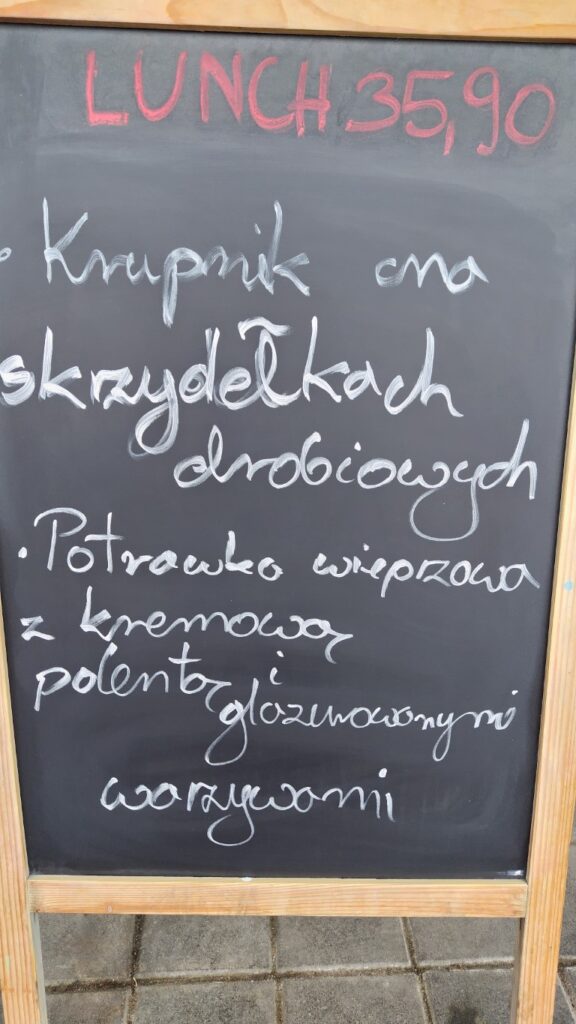 LUNCH 35,90
• Krupnik na
skrzydełkach
drobiowych
• Potrawka wieprzowa
z kremową
polentą i
glazurowanymi
warzywami